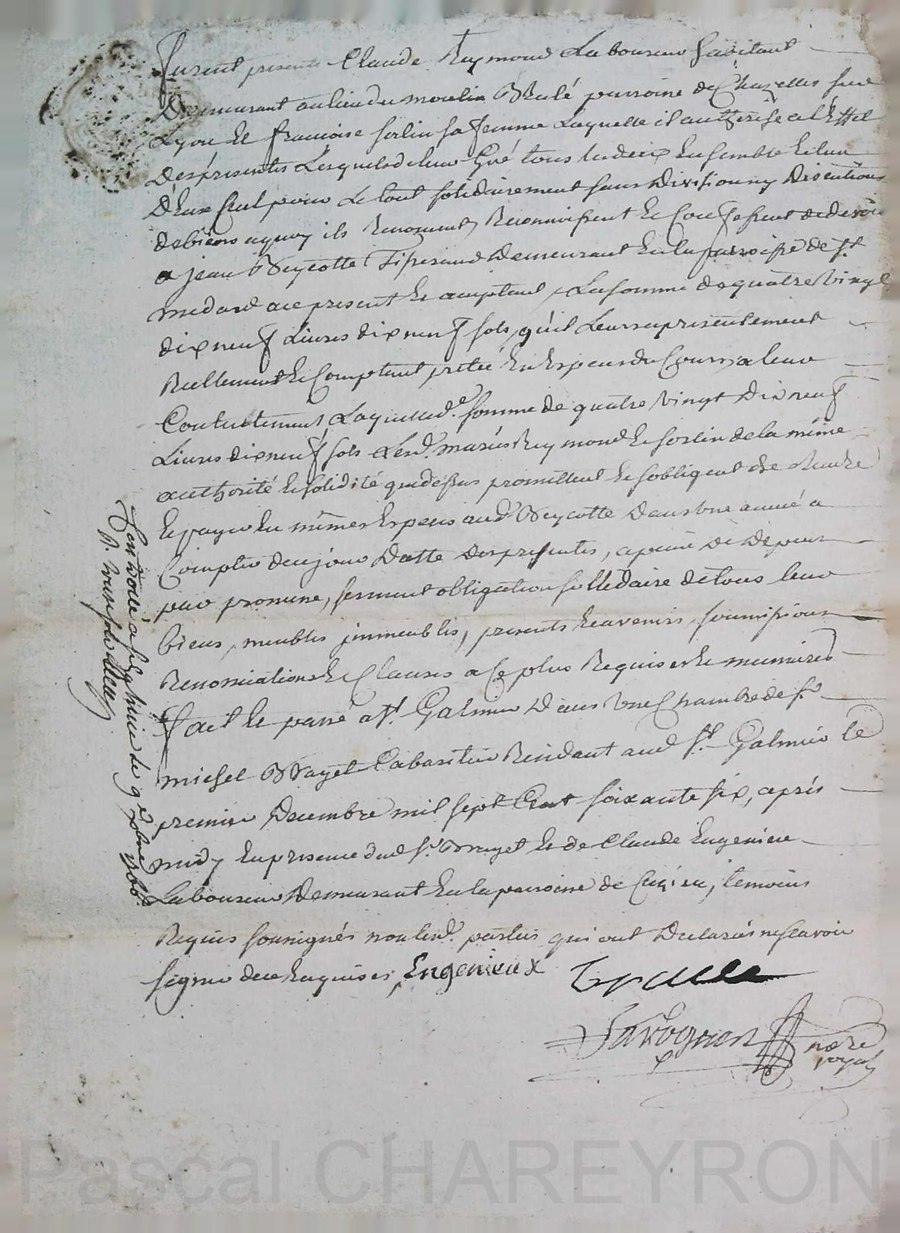 furent presents Claude Reymond Laboureur habitant
Demeurant au lieu du moulin Brulé parroisse de Chazelles sur
Lyon et francoise sorlin sa femme Laquelle il authorise a l'effet
Des presentes Lesquels de leur Gré tous les deux Ensemble et lun
D'eux seul pour Le tout solidairement sans Division ny Discution
de biens a quoy ils Renoncent, Reconnoissent et Confessent de devoir
a jean Tisserand Demeurant En la parroisse de St
medard ace present et aceptant, La somme de quatre vingt
dix neuf Livres dix neuf sols qu'il Leur a presentement
Reellement et Comptant pretée En Especes du Cours, a leur
Contentement Laquelle de. somme de quatre vingt Dix neuf
Livres dix neuf sols Lesd. mariés Reymond et sorlin de la même
authorité et solidité que dessus promettent et sobligent de Rendre
et payer En mêmes Especes aud. Dans une année a
Compter de ce jour Datte Des presentes, a peine de Depens
par promesse, serment obligation sollidaire de tous leur
biens, meubles jmmeubles, presents et avenir, soumissions
Renonciations et Clauses a Ce plus Requises et
fait et passé a St. Galmier Dans une Chambre de sr.
michel Cabaretier Residant aud. St. Galmier le
premier Decembre mil sept Cent soixante six, apres
midy En presence dud. sr. et de Claude Engenieux
Laboureur Demeurant En la parroisse de Cuzieu, temoins
Requis soussignés non lesd. parties qui ont Declarés ne scavoir
signer de ce Enquises, Engenieux
notre
royal
Controllé a St Galmier le 9 Xbre 1766.
R.
Pascal CHAREYRON